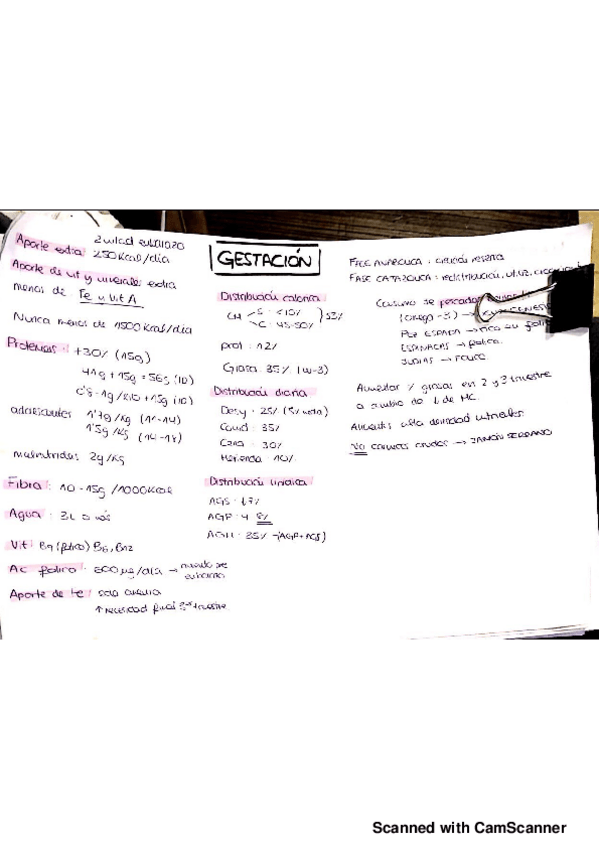 2 mitad embarazo
Aporte extra: 250 Kcal/día
Aporte de vit y minerales extra
menos de Fe y Vit A
Nunca menos de 1500 Kcal/día
Proteinas: +30% (15g)
41g + 15g = 56g (ID)
1g/Kilo + 15g (ID)
adolescentes 1'7g/Kg (11-14)
1'5g/Kg (14-18)
malnutridas: 2g/Kg
Fibra: 10-15g /1000Kcal
Agua: 3L o más
Vit: B9 (folico) B6, B12
Ac folico: 600µg/día →
Aporte de Fe: solo
↑ necesidad final 3er trimestre
GESTACIÓN
Distribución calorica
CH S: <10%
C: 45-50% } 53%
prot: 12%
Grasa: 35% (w-3)
Distribución diaria
Desy: 25% (5% media)
Comid: 35%
Cena: 30%
Merienda: 10%
Distribución lipidica
AGS: <7%
AGP: 4 8%
AGM: 35% -(AGP+AGS)
FASE ANABOLICA:
FASE CATABOLICA: redistribución, utiliz,
Consumo de pescados
(omega-3) →
PEZ ESPADA →
ESPINACAS → folico
JUDIAS →
Aumentar % grasas en 2 y 3 trimestre
a cambio de ↓ de HC.
Aliments alta densidad nutrientes
No carnes crudas → JAMÓN SERRANO
Scanned with CamScanner